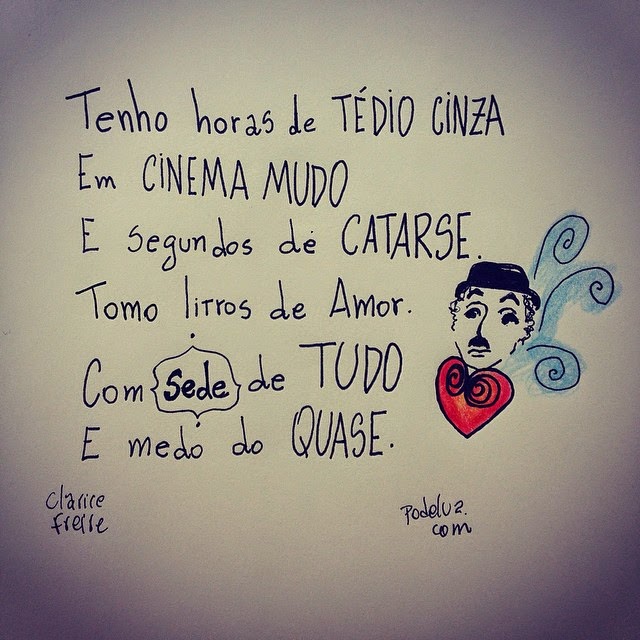 Tenho horas de TÉDIO CINZA
Em CINEMA MUDO
E segundos de CATARSE.
Tomo litros de Amor.
Com {sede} de TUDO
E medo do QUASE.
Clarice
freire
podeluz.
com